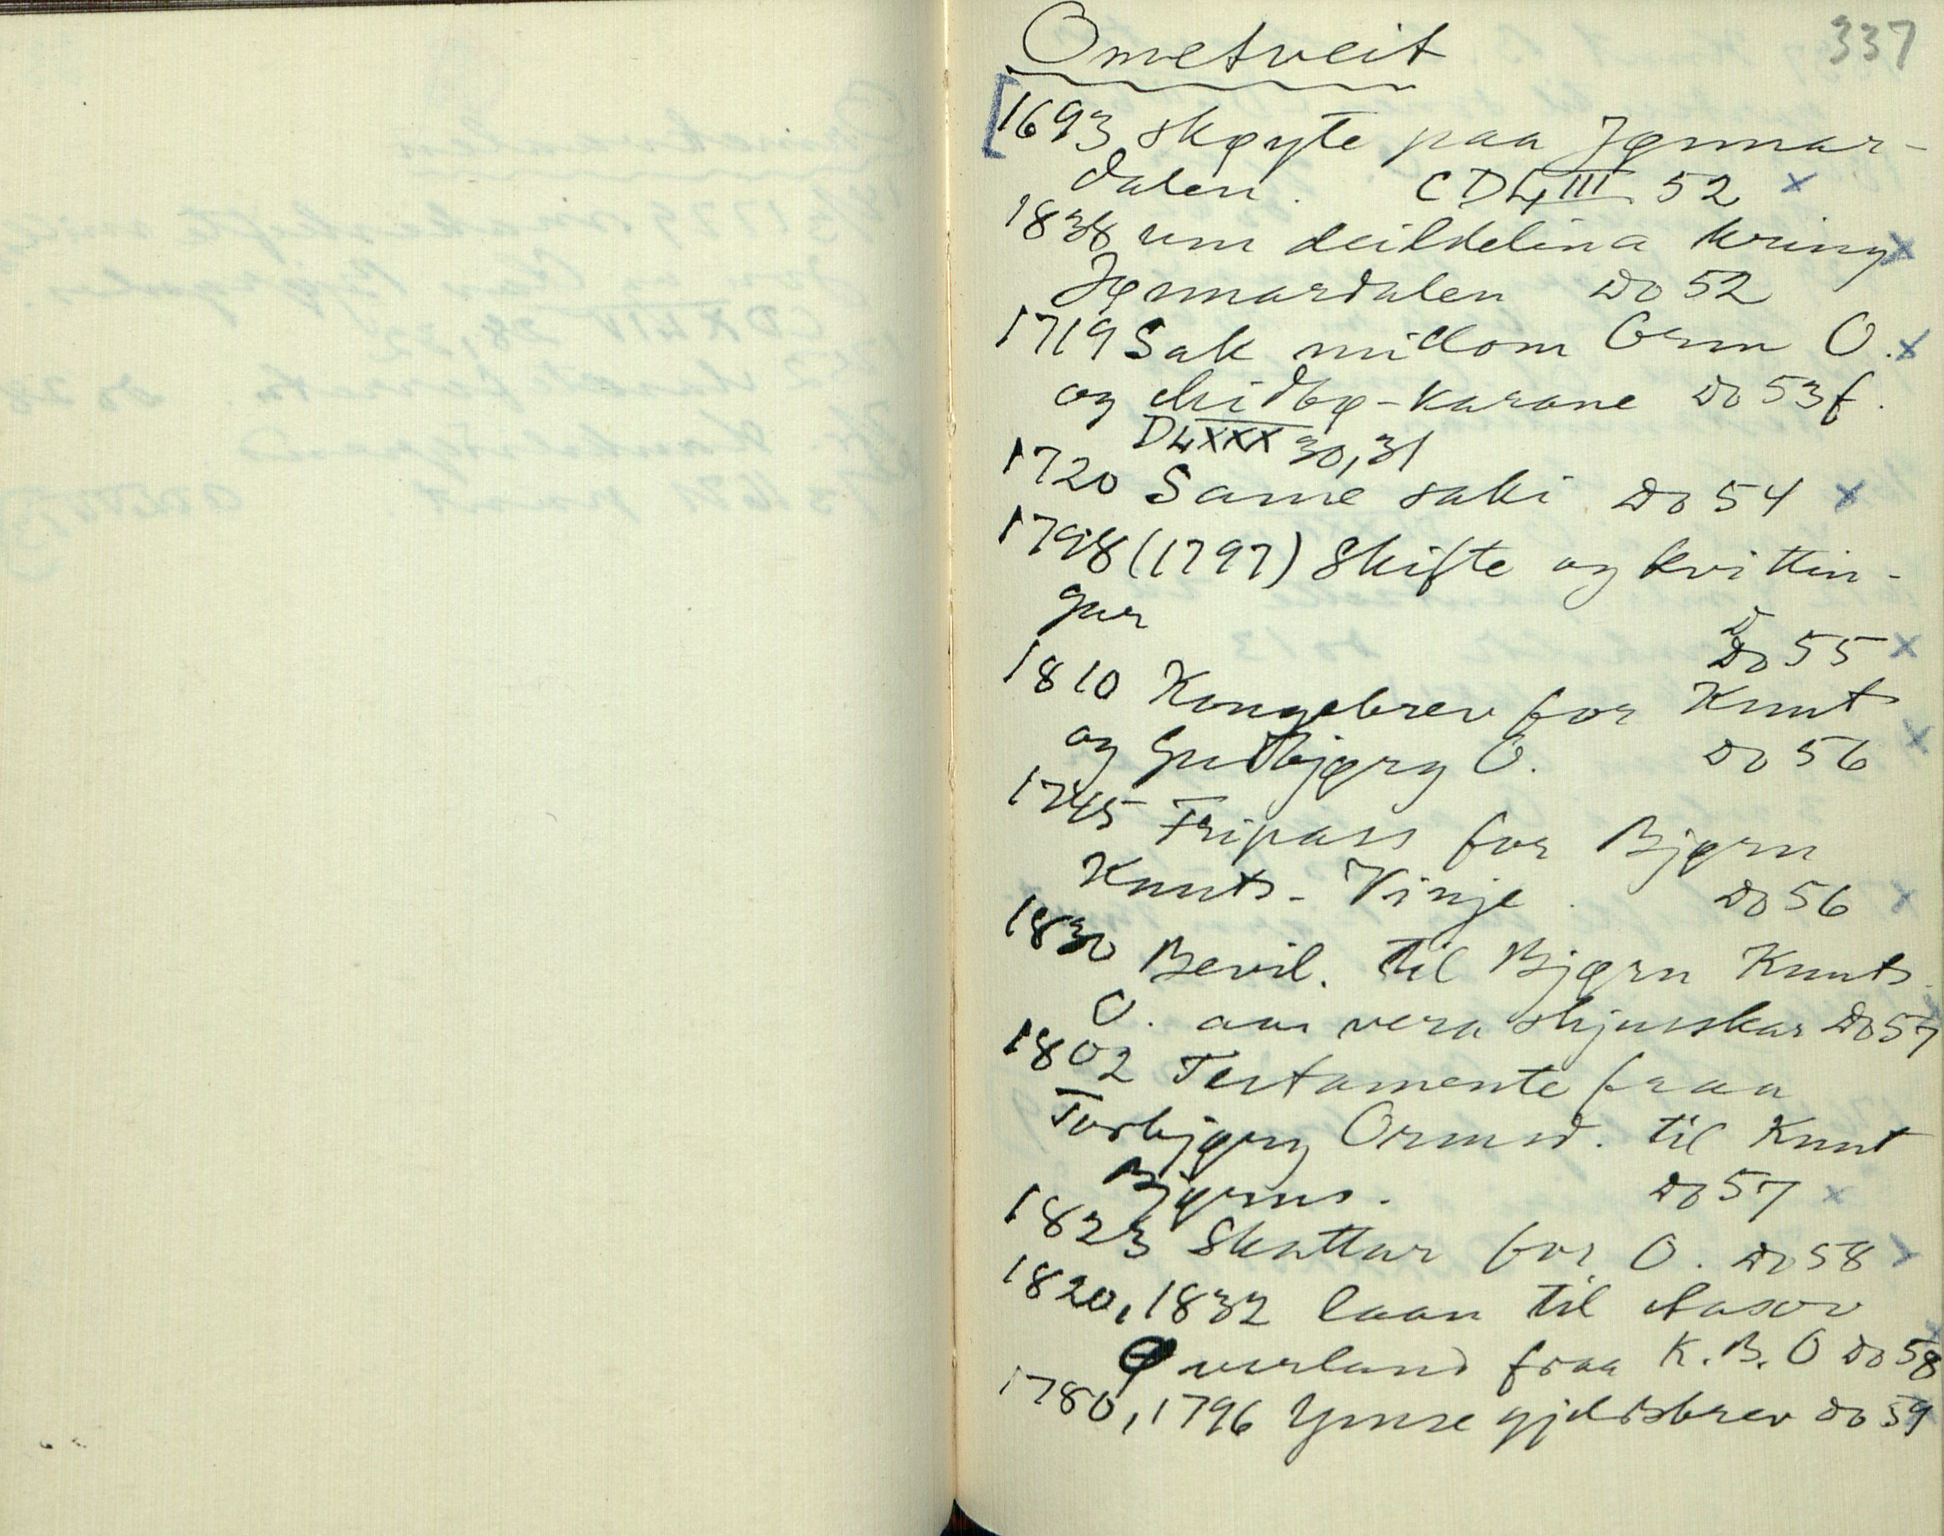 337
Ometveit
[1693 skøyte paa Jønnar-
dalen. CDLIII 52 x
1838 um deildelina kring x
Jønnardalen Do 52
1719 Sak millom Orm O. x
og Midbø-karane Do 53 f.
DLXXX 30, 31
1720 Same saki Do 54 x
1798 (1797) Skifte og kvittin-
gar
Do 55 x
1810 Kongebrev for Knut x
og Gudbjørg O. Do 56
1745 Fripass for Bjørn
Knuts. Vinje. Do 56 x
1830 Bevil. til Bjørn Knuts.
O. aa vera skjusskar Do 57
1802 Testamente fraa
Torbjørg Ormsd. til Knut
Bjørns. Do 57 x
1823 Skattar for O. Do 58 x
1820, 1832 laan til Aasov
Øverland fraa K. B. O Do 58 x
1780, 1796 Ymse gjeldsbrev Do 59